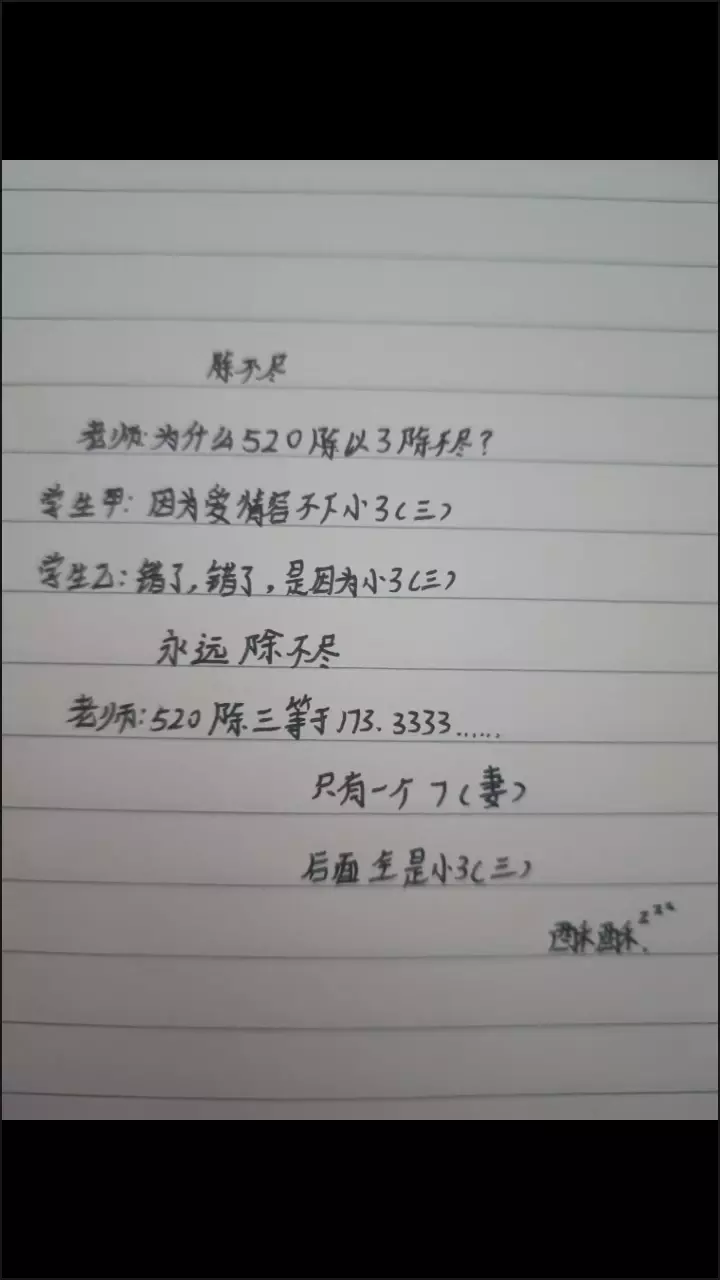 除不尽
老师:为什么520除以3除不尽?
学生甲:因为爱情容不下小3(三)
学生乙:错了,错了,是因为小3(三)
永远除不尽
老师:520除三等于173.3333......
只有一个7(妻)
后面全是小3(三)
酥酥